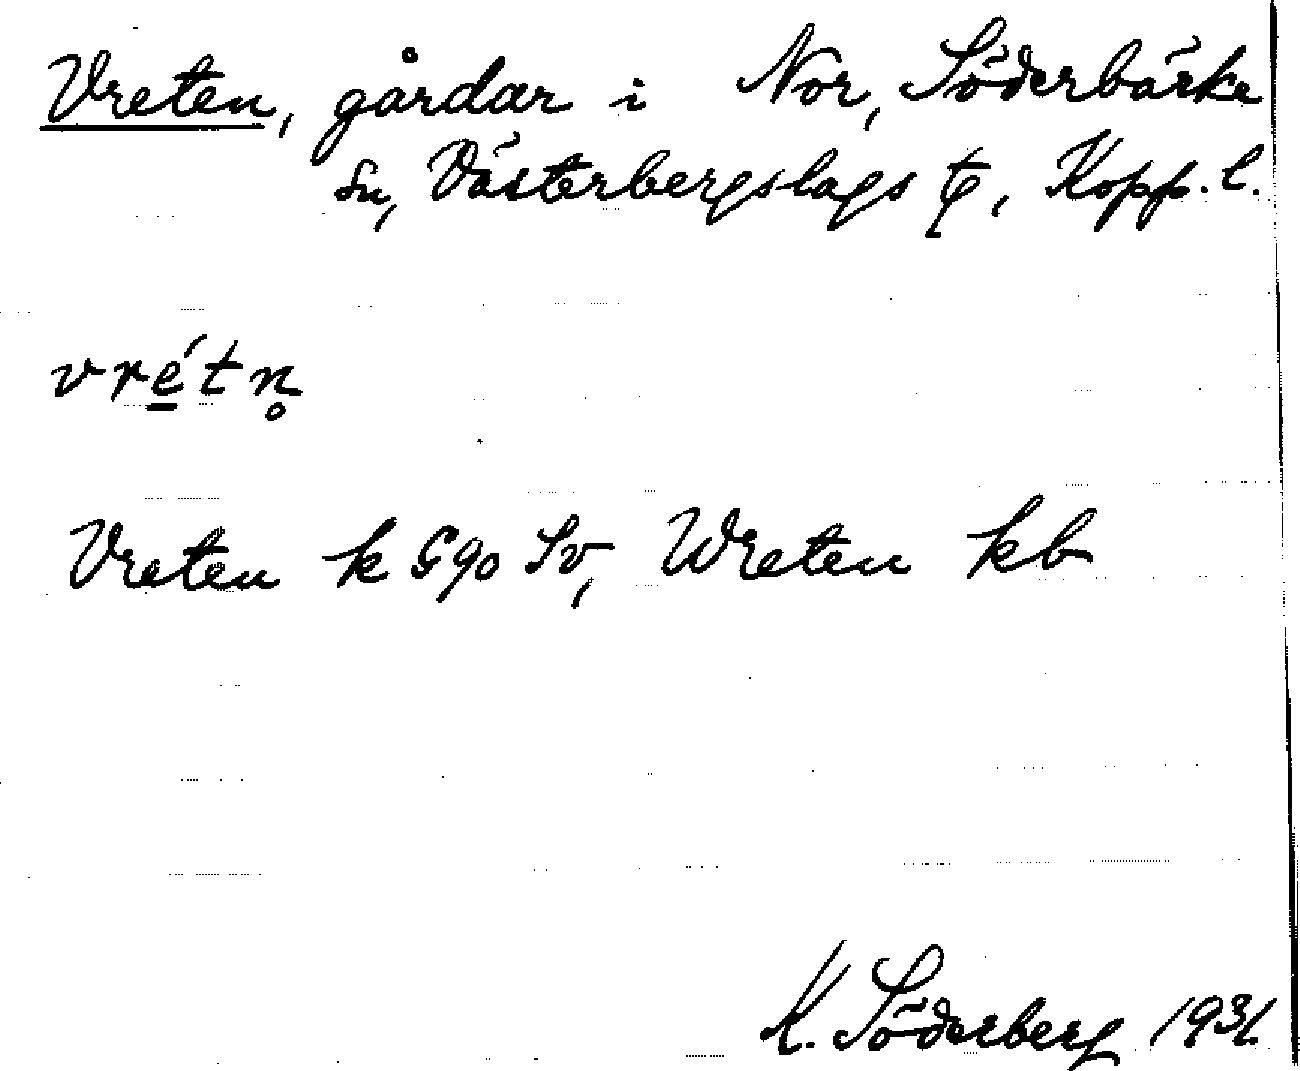 Vreten, gårdar i Nor, Söderbärke
sn, Västerbergslags tg, Kopp. l.
vrétn̥
Vreten k G90 Sv, Wreten kb
K. Söderberg 1931